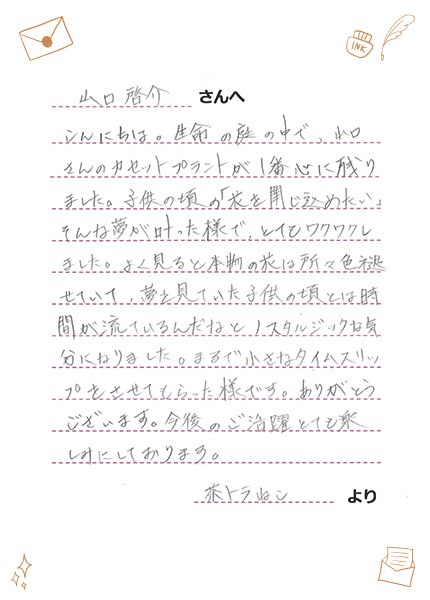 山口 啓介 さんへ
こんにちは。生命の庭の中で、山口
さんのカセットプラントが1番心に残り
ました。子供の頃の「花を閉じ込めたい」
そんな夢が叶った様で、とてもワクワクし
ました。よく見ると本物の花は所々色褪
せていて、夢を見ていた子供の頃とは時
間が流ているんだなと ノスタルジックな気
分になりました。まるで小さなタイムスリッ
プをさせてもらった様です。ありがとう
ございます。今後のご活躍とても楽
しみにしております。
茶トラねこ より
INK